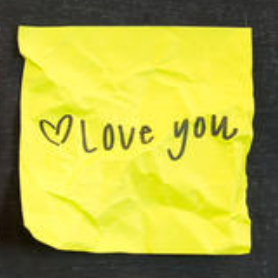 ♡Love you